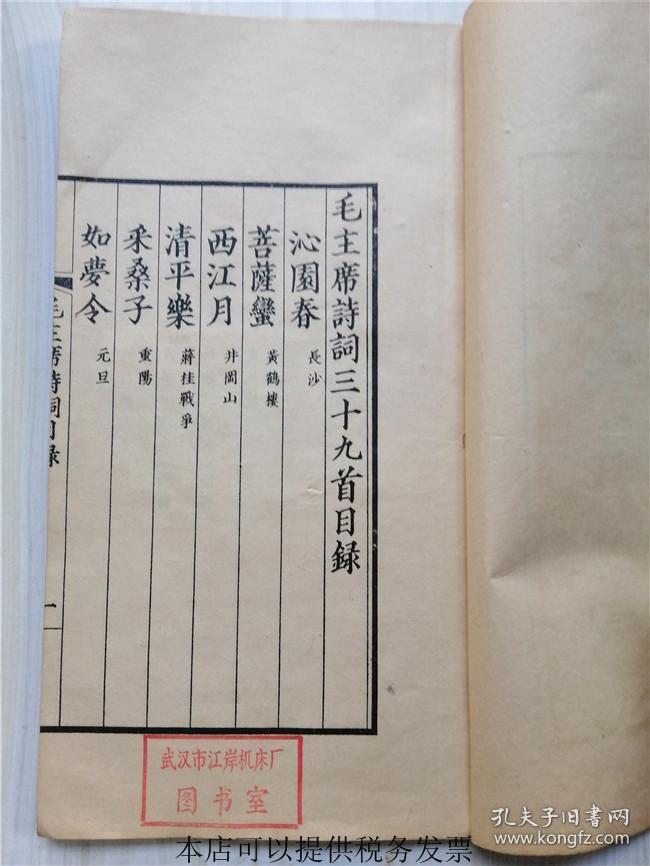 毛主席詩詞三十九首目録
沁園春 長沙
菩薩蠻 黃鶴樓
西江月 井岡山
清平樂 蔣桂戰爭
采桑子 重陽
如夢令 元旦
毛主席詩詞目録
一
武汉市江岸机床厂
图书室
孔夫子旧书网
www.kongfz.com
本店可以提供税务发票